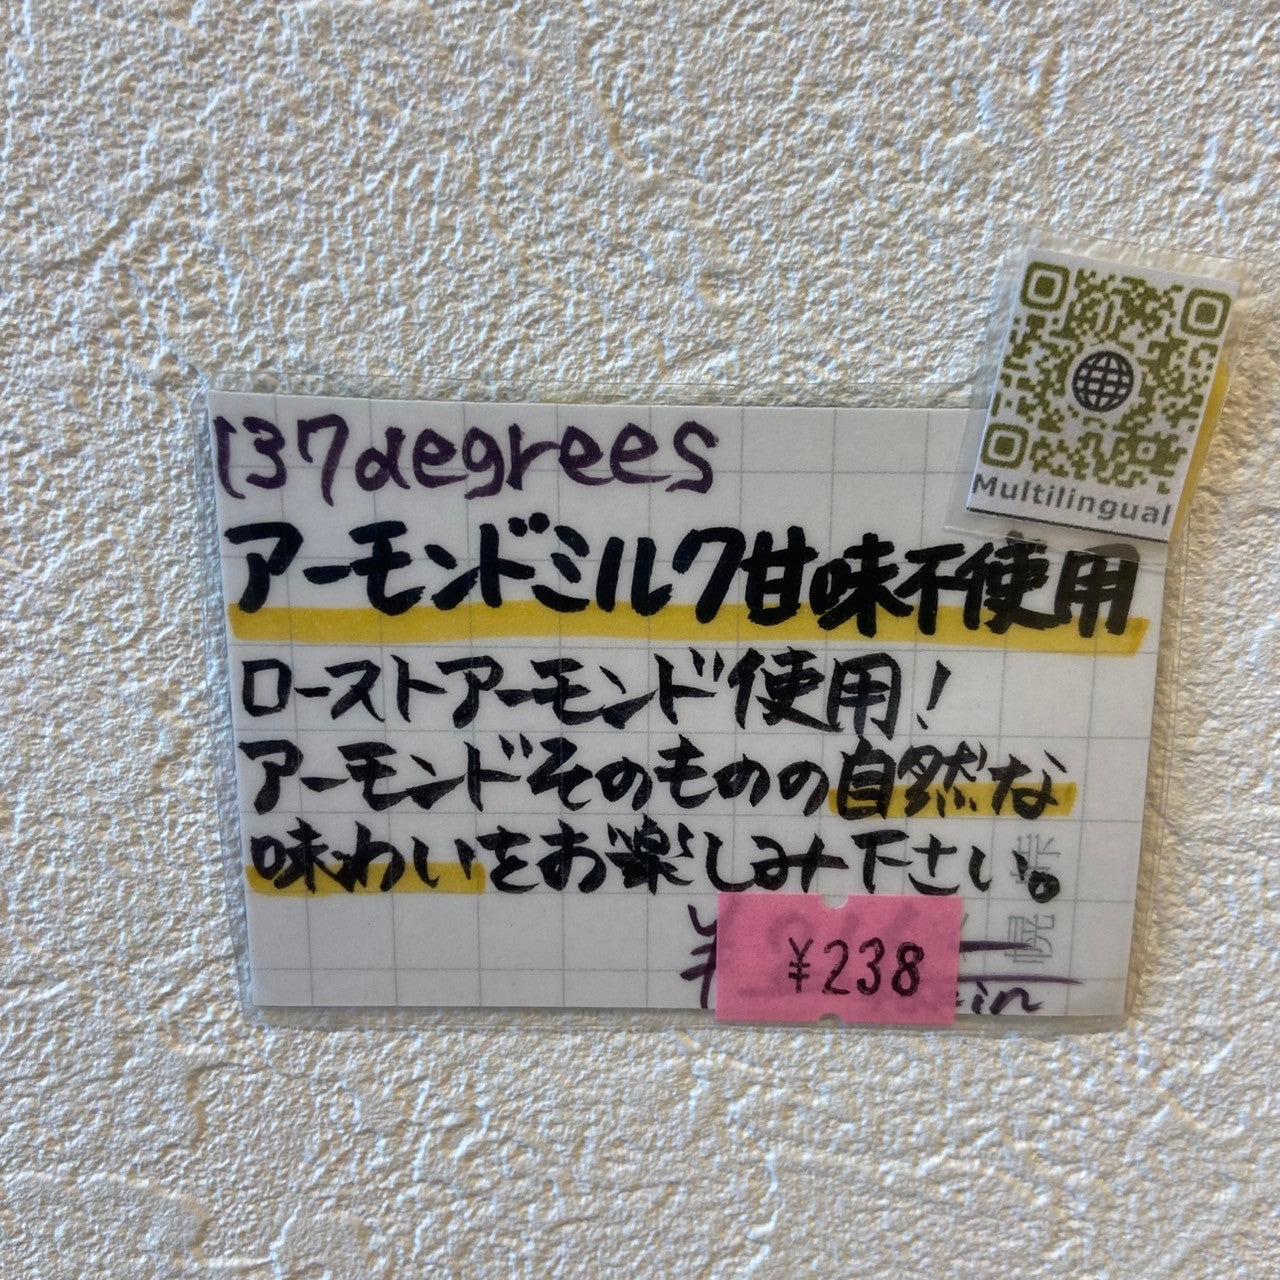 137degrees
Multilingual
アーモンドミルク甘味不使用
ローストアーモンド使用!
アーモンドそのものの自然な
味わいをお楽しみ下さい。
¥238